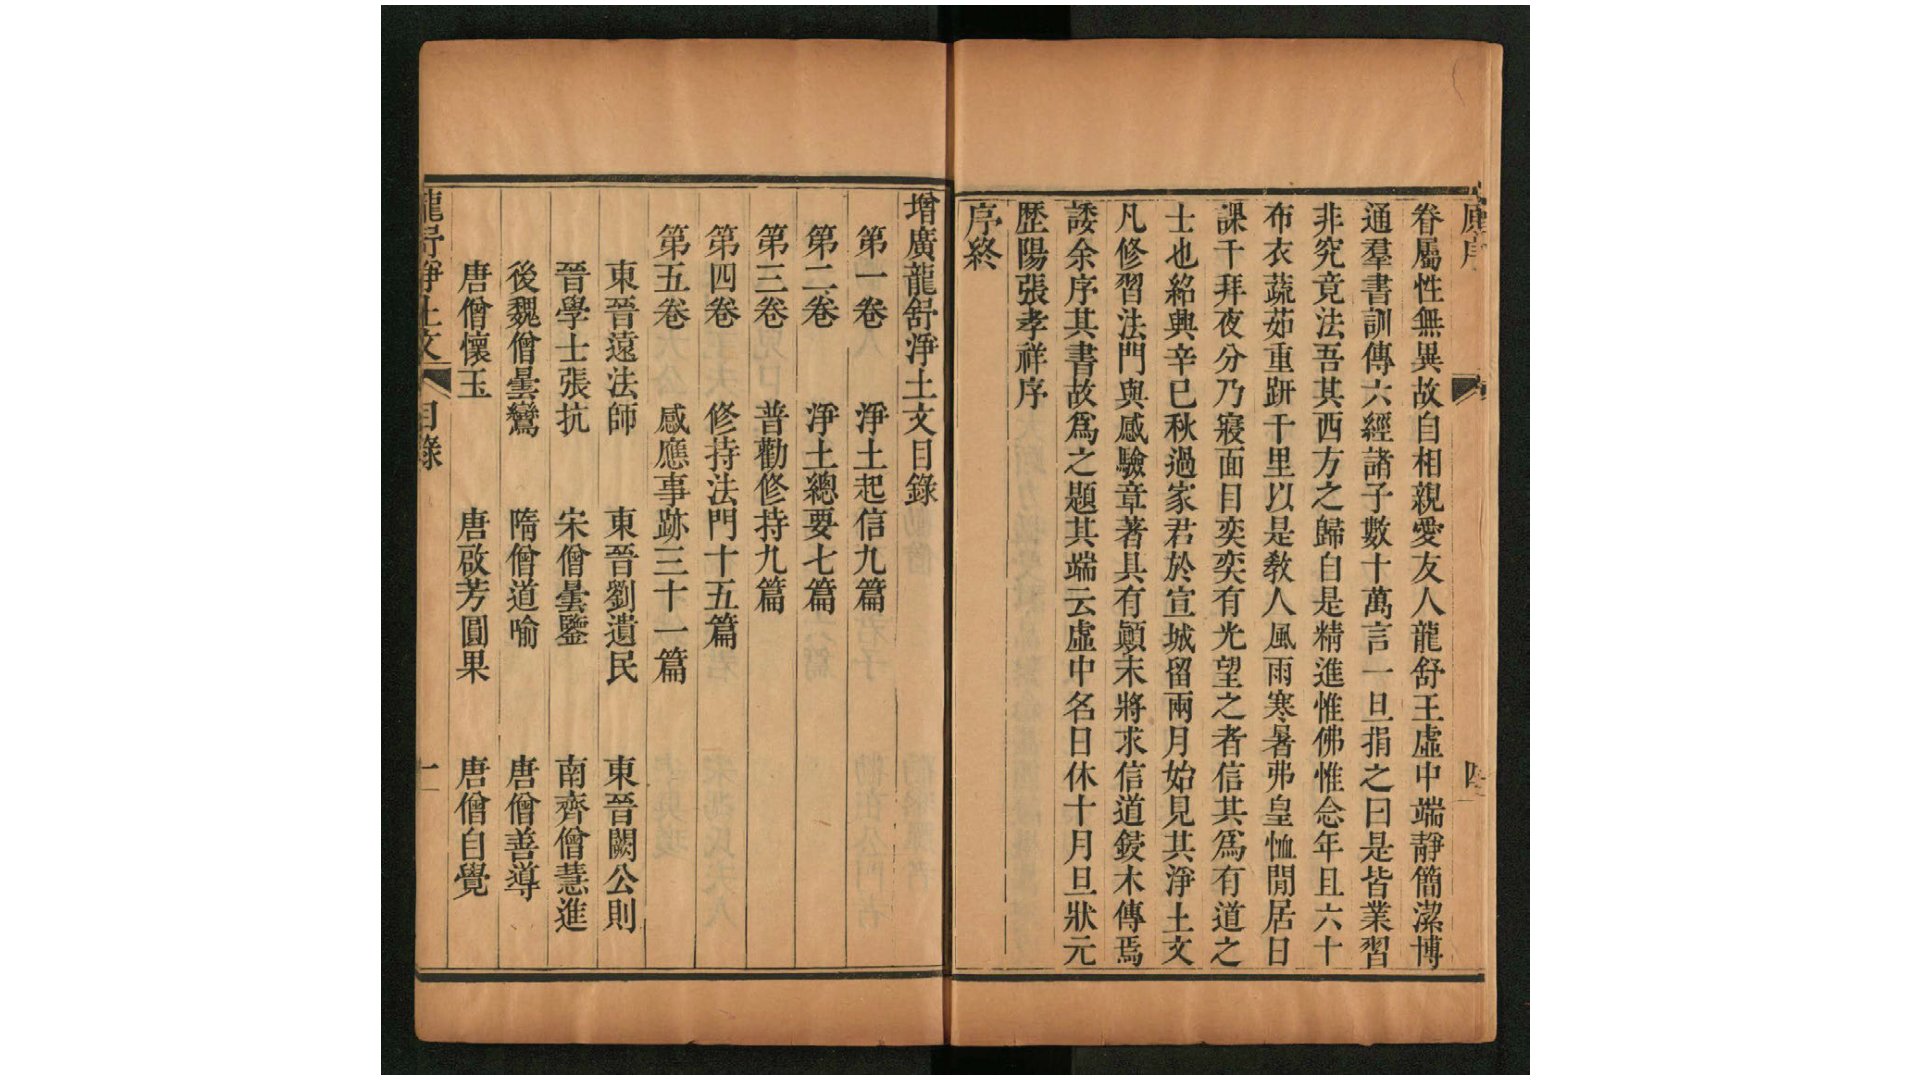 眷屬性無異故自相親愛友人龍舒王虛中端靜簡潔博
通羣書訓傳六經諸子數十萬言一旦捐之曰是皆業習
非究竟法吾其西方之歸自是精進惟佛惟念年且六十
布衣蔬茹重趼千里以是教人風雨寒暑弗皇恤閒居日
課千拜夜分乃寢面目奕奕有光望之者信其爲有道之
士也紹興辛巳秋過家君於宣城留兩月始見其淨土文
凡修習法門與感驗章著具有顚末將求信道鋟木傳焉
諉余序其書故爲之題其端云虛中名日休十月旦狀元
歴陽張孝祥序
序終
增廣龍舒淨土文目錄
第一卷 淨土起信九篇
第二卷 淨土總要七篇
第三卷 普勸修持九篇
第四卷 修持法門十五篇
第五卷 感應事跡三十一篇
東晉遠法師 東晉劉遺民 東晉闕公則
晉學士張抗 宋僧曇鑒 南齊僧慧進
後魏僧曇鸞 隋僧道喻 唐僧善導
唐僧懷玉 唐啟芳圓果 唐僧自覺
龍舒淨土文 目錄 一